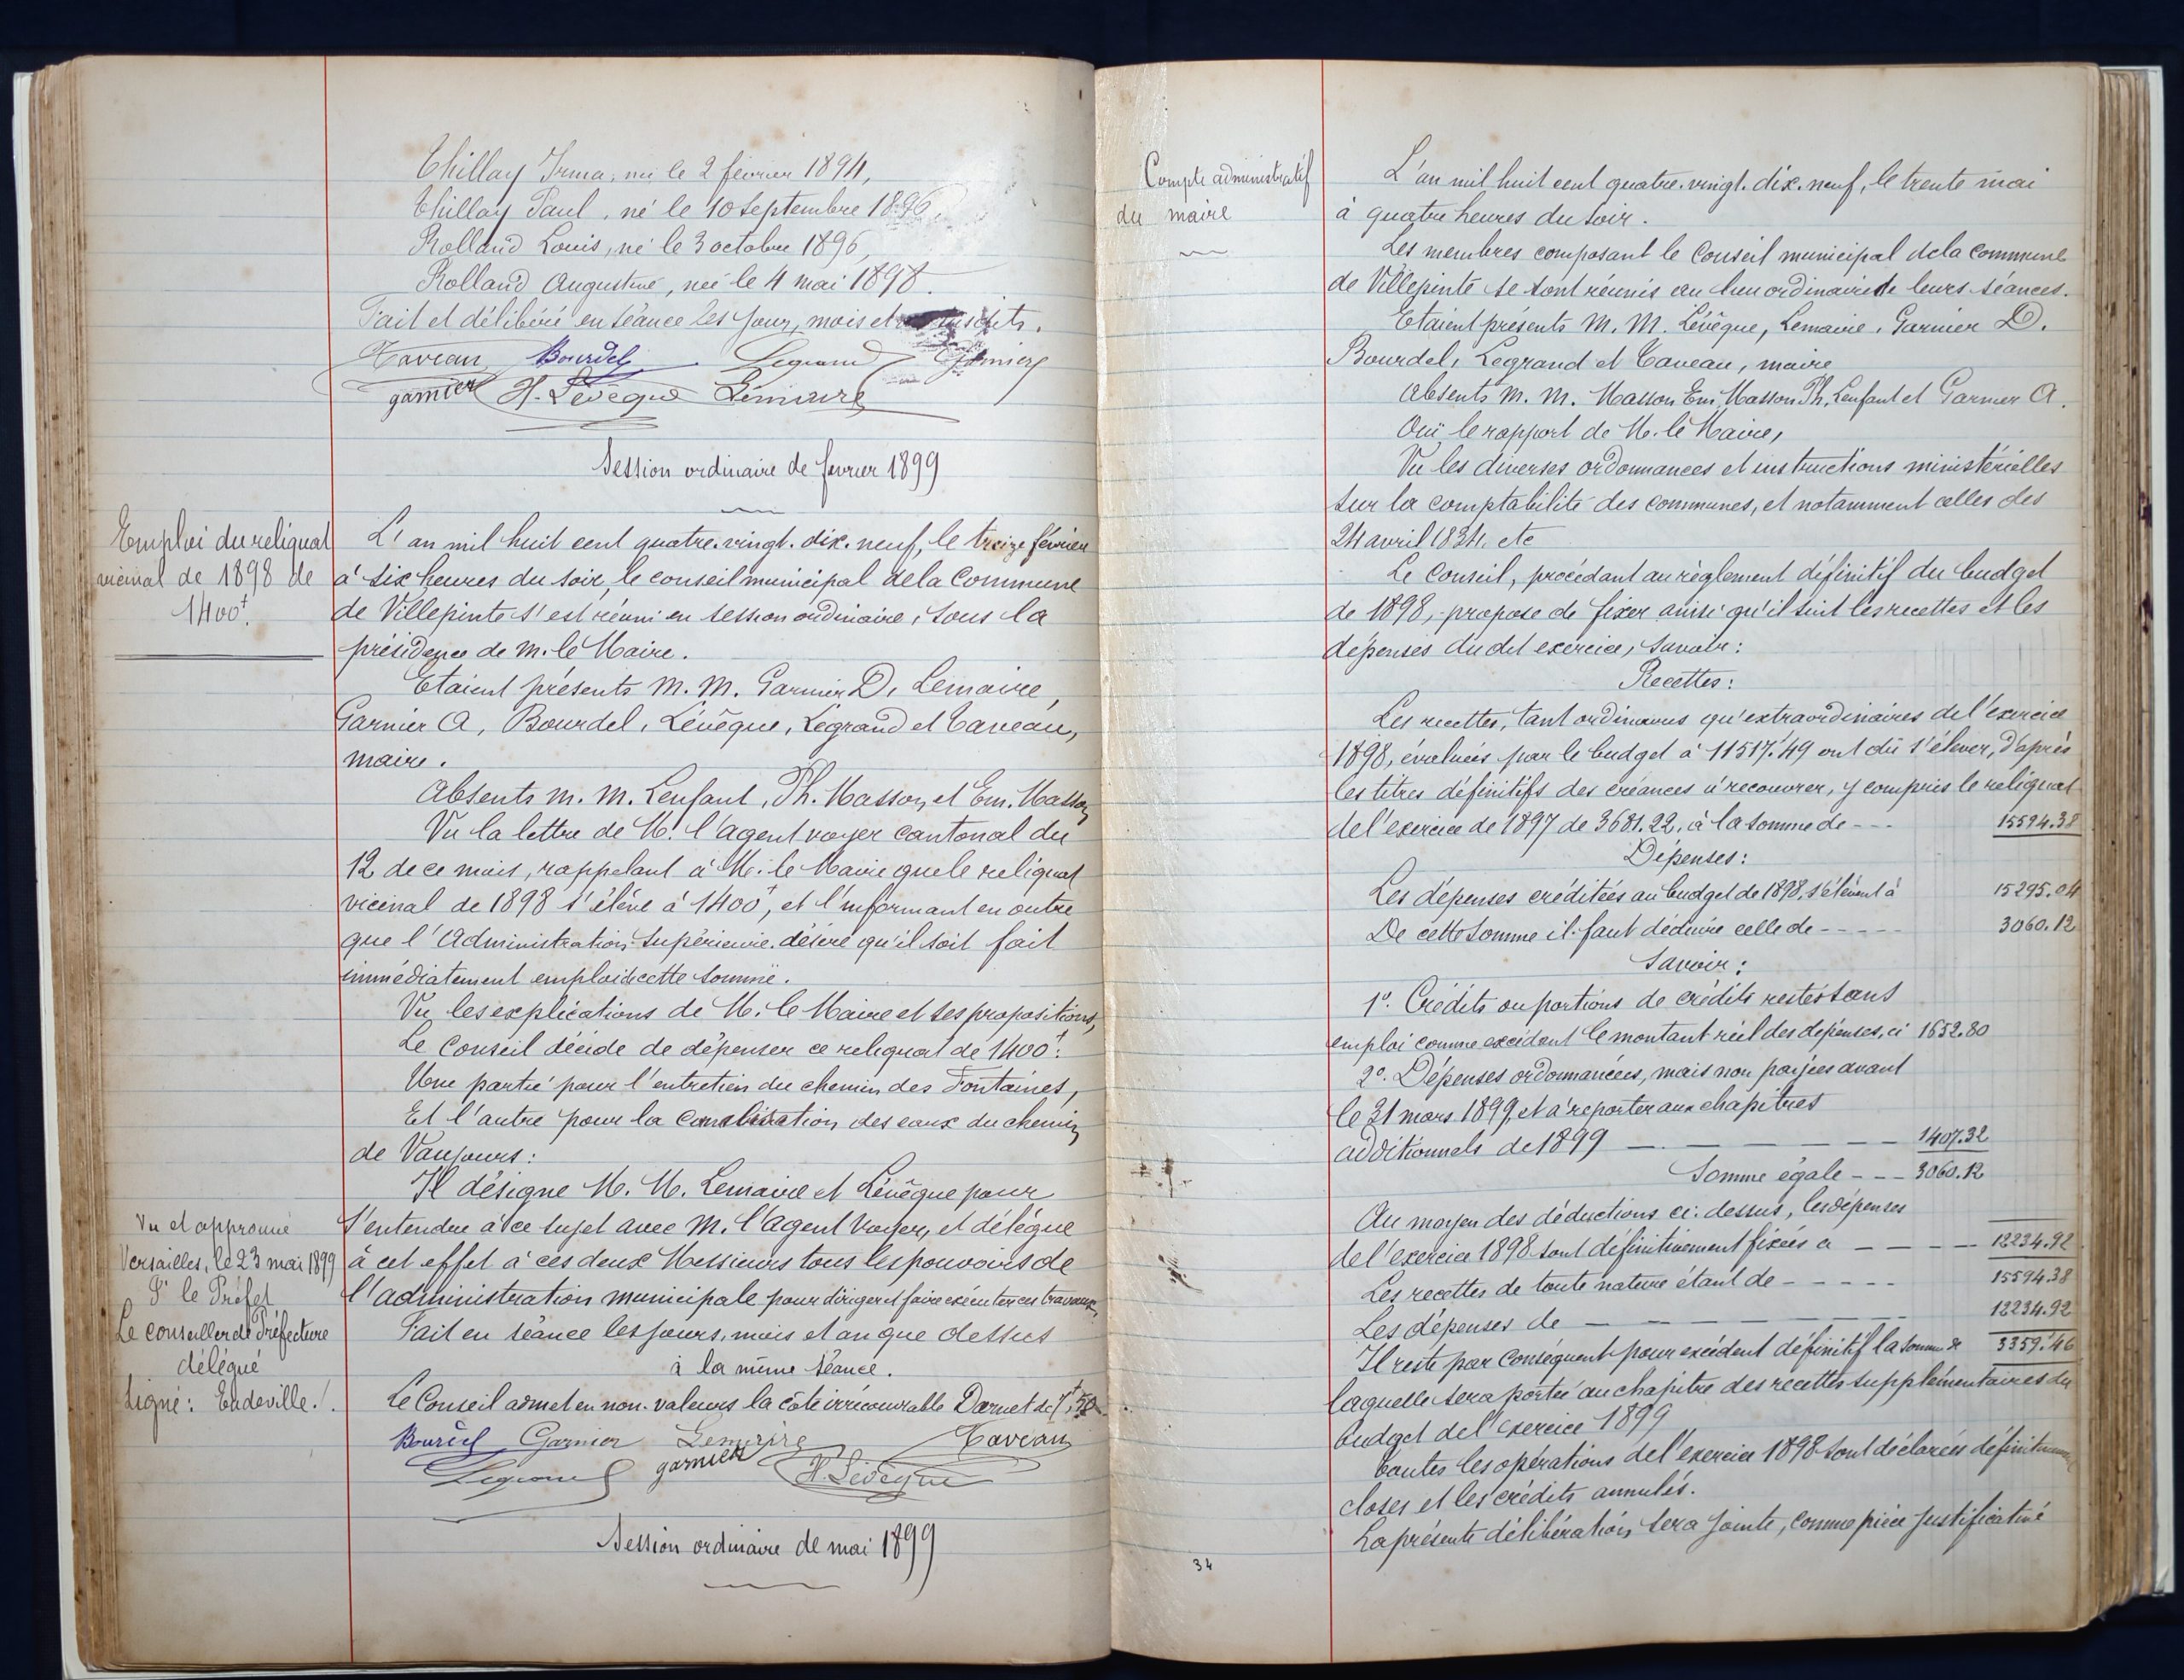 Thillay Irma, née le 2 février 1894,
Thillay Paul, né le 10 Septembre 1896,
Rolland Louis, né le 3 octobre 1896,
Rolland Augustine, née le 4 mai 1898.
Fait et délibéré en séance les jour, mois et susdits.
Taveau Bourdel Legrand Garnier
garnier H. Lévêque Lemaire
Session ordinaire de février 1899
Emploi du reliquat
vicinal de 1898 de
1400f.
L'an mil huit cent quatre-vingt-dix-neuf, le treize février
à six heures du soir, le conseil municipal de la Commune
de Villepinte s'est réuni en session ordinaire, sous la
présidence de M. le Maire.
Etaient présents M. M. Garnier D, Lemaire,
Garnier A, Bourdel, Lévêque, Legrand et Taveau,
maire.
Absents M. M. Lenfant, Ph. Masson, et Em. Masson
Vu la lettre de M. l'agent voyer cantonal du
12 de ce mois, rappelant à M. le Maire que le reliquat
vicinal de 1898 s'élève à 1400f, et l'informant en outre
que l'Administration Supérieure désire qu'il soit fait
immédiatement emploi de cette somme.
Vu les explications de M. le Maire et ses propositions,
Le Conseil décide de dépenser ce reliquat de 1400f:
Une partie pour l'entretien du chemin des Fontaines,
Et l'autre pour la canalisation des eaux du chemin
de Vaujours:
Il désigne M. M. Lemaire et Lévêque pour
s'entendre à ce sujet avec M. l'agent Voyer, et délègue
à cet effet à ces deux Messieurs tous les pouvoirs de
l'administration municipale pour diriger et faire exécuter ces travaux.
Fait en séance les jours, mois et an que dessus
Vu et approuvé
Versailles, le 23 mai 1899
Pr le Préfet
Le conseiller de Préfecture
délégué
Signé: Eudeville.
à la même séance.
Le Conseil admet en non-valeurs la côte irrécouvrable Darnet de 7f,50
Bourdel Garnier Lemaire Taveau
Legrand garnier H. Lévêque
Session ordinaire de mai 1899
Compte administratif
du maire
L'an mil huit cent quatre-vingt-dix-neuf, le trente mai
à quatre heures du soir.
Les membres composant le Conseil municipal de la commune
de Villepinte se sont réunis au lieu ordinaire de leurs séances.
Etaient présents M. M. Lévêque, Lemaire, Garnier D.
Bourdel, Legrand et Taveau, maire
Absents M. M. Masson Em, Masson Ph, Lenfant et Garnier A.
Ouï le rapport de M. le Maire,
Vu les diverses ordonnances et instructions ministérielles
sur la comptabilité des communes, et notamment celles des
24 avril 1834, etc
Le Conseil, procédant au règlement définitif du budget
de 1898, propose de fixer ainsi qu'il suit les recettes et les
dépenses dudit exercice, savoir:
Recettes:
Les recettes, tant ordinaires qu'extraordinaires de l'exercice
1898, évaluées par le budget à 11517f.49 ont dû s'élever, d'après
les titres définitifs des créances à recouvrer, y compris le reliquat
de l'exercice de 1897 de 3681.22, à la somme de --- 15594.38
Dépenses:
Les dépenses créditées au budget de 1898, s'élèvent à 15295.04
De cette somme il faut déduire celle de ----- 3060.12
Savoir:
1º. Crédits ou portions de crédits restés sans
emploi comme excédant le montant réel des dépenses, ci 1652.80
2º. Dépenses ordonnancées, mais non payées avant
le 31 mars 1899, et à reporter aux chapitres
additionnels de 1899 ------- 1407.32
Somme égale --- 3060.12
Au moyen des déductions ci-dessus, les dépenses
de l'exercice 1898 sont définitivement fixées à ---- 12234.92
Les recettes de toute nature étant de ----- 15594.38
Les dépenses de ------- 12234.92
Il reste par conséquent pour excédent définitif la somme de 3359f.46
laquelle sera portée au chapitre des recettes supplémentaires du
budget de l'exercice 1899
Toutes les opérations de l'exercice 1898 sont déclarées définitivement
closes et les crédits annulés.
La présente délibération sera jointe, comme pièce justificative
34